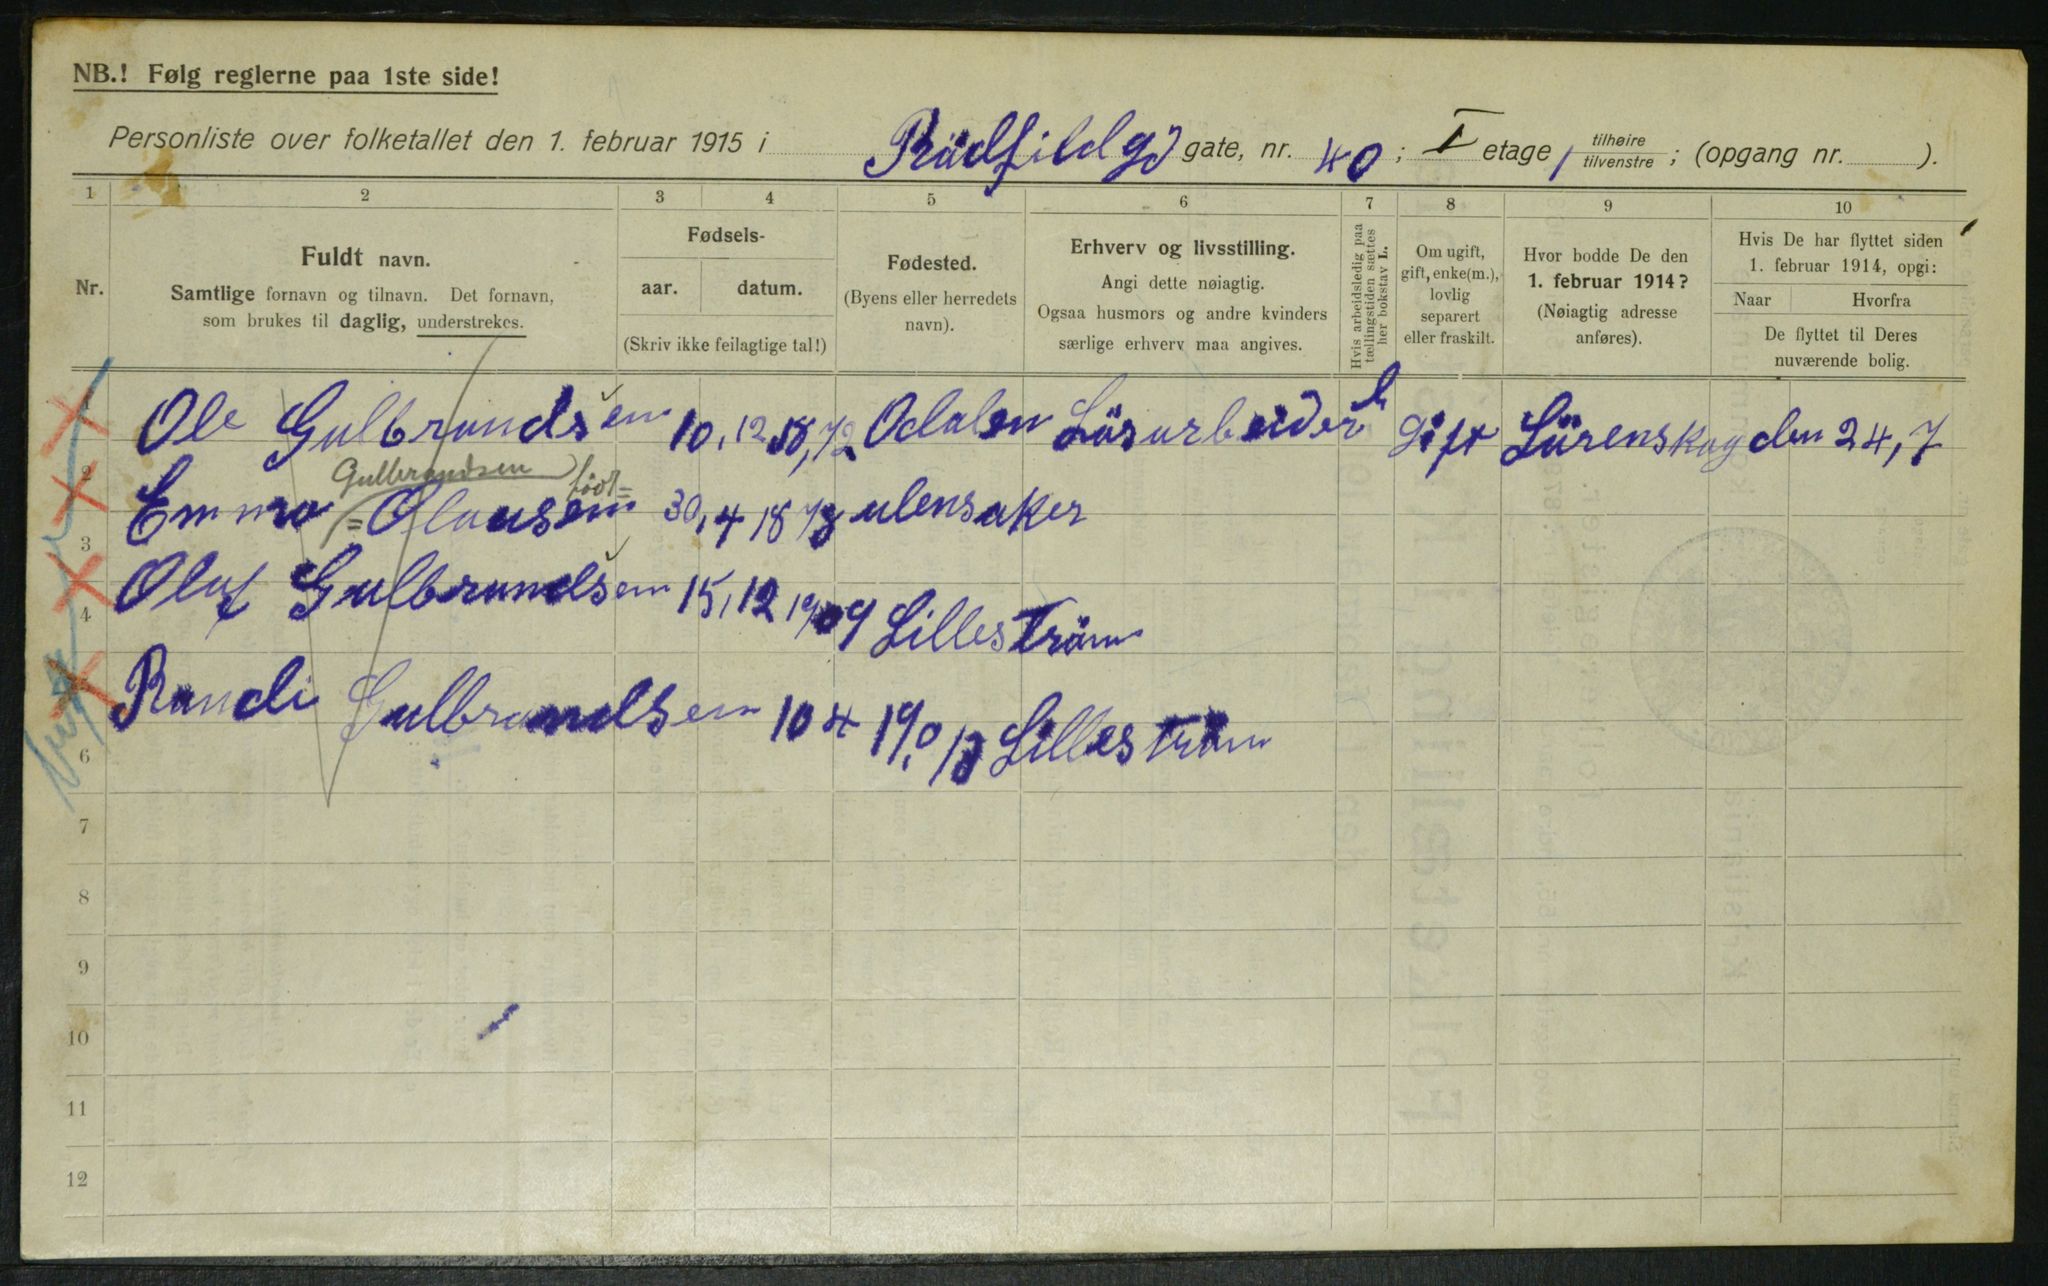 NB.! Følg reglerne paa 1ste side!
Personliste over folketallet den 1. februar 1915 i Rödfildgd gate, nr. 40; I etage / tilhøire tilvenstre; (opgang nr. ).
1 2 3 4 5 6 7 8 9 10
Nr.
Fuldt navn.
Samtlige fornavn og tilnavn. Det fornavn,
som brukes til daglig, understrekes.
Fødsels-
aar. datum.
(Skriv ikke feilagtige tal!)
Fødested.
(Byens eller herredets
navn).
Erhverv og livsstilling.
Angi dette nøiagtig.
Ogsaa husmors og andre kvinders
særlige erhverv maa angives.
Hvis arbeidsledig paa
tællingstiden sættes
her bokstav L.
Om ugift,
gift, enke(m.),
lovlig
separert
eller fraskilt.
Hvor bodde De den
1. februar 1914?
(Nøiagtig adresse
anføres).
Hvis De har flyttet siden
1. februar 1914, opgi:
Naar Hvorfra
De flyttet til Deres
nuværende bolig.
1 Ole Gulbrandsen 10, 12 18,72 Odalen Lösarbeider L gift Lörenskog den 24,7
Gulbrandsen født=
2 Emma =Olausen 30,4 18 78 ulensaker
3 Olaf Gulbrandsen 15,12 1909 Lilleström
4 Randi Gulbrandsen 10 4 19, 13 Lilleström
5
6
7
8
9
10
11
12